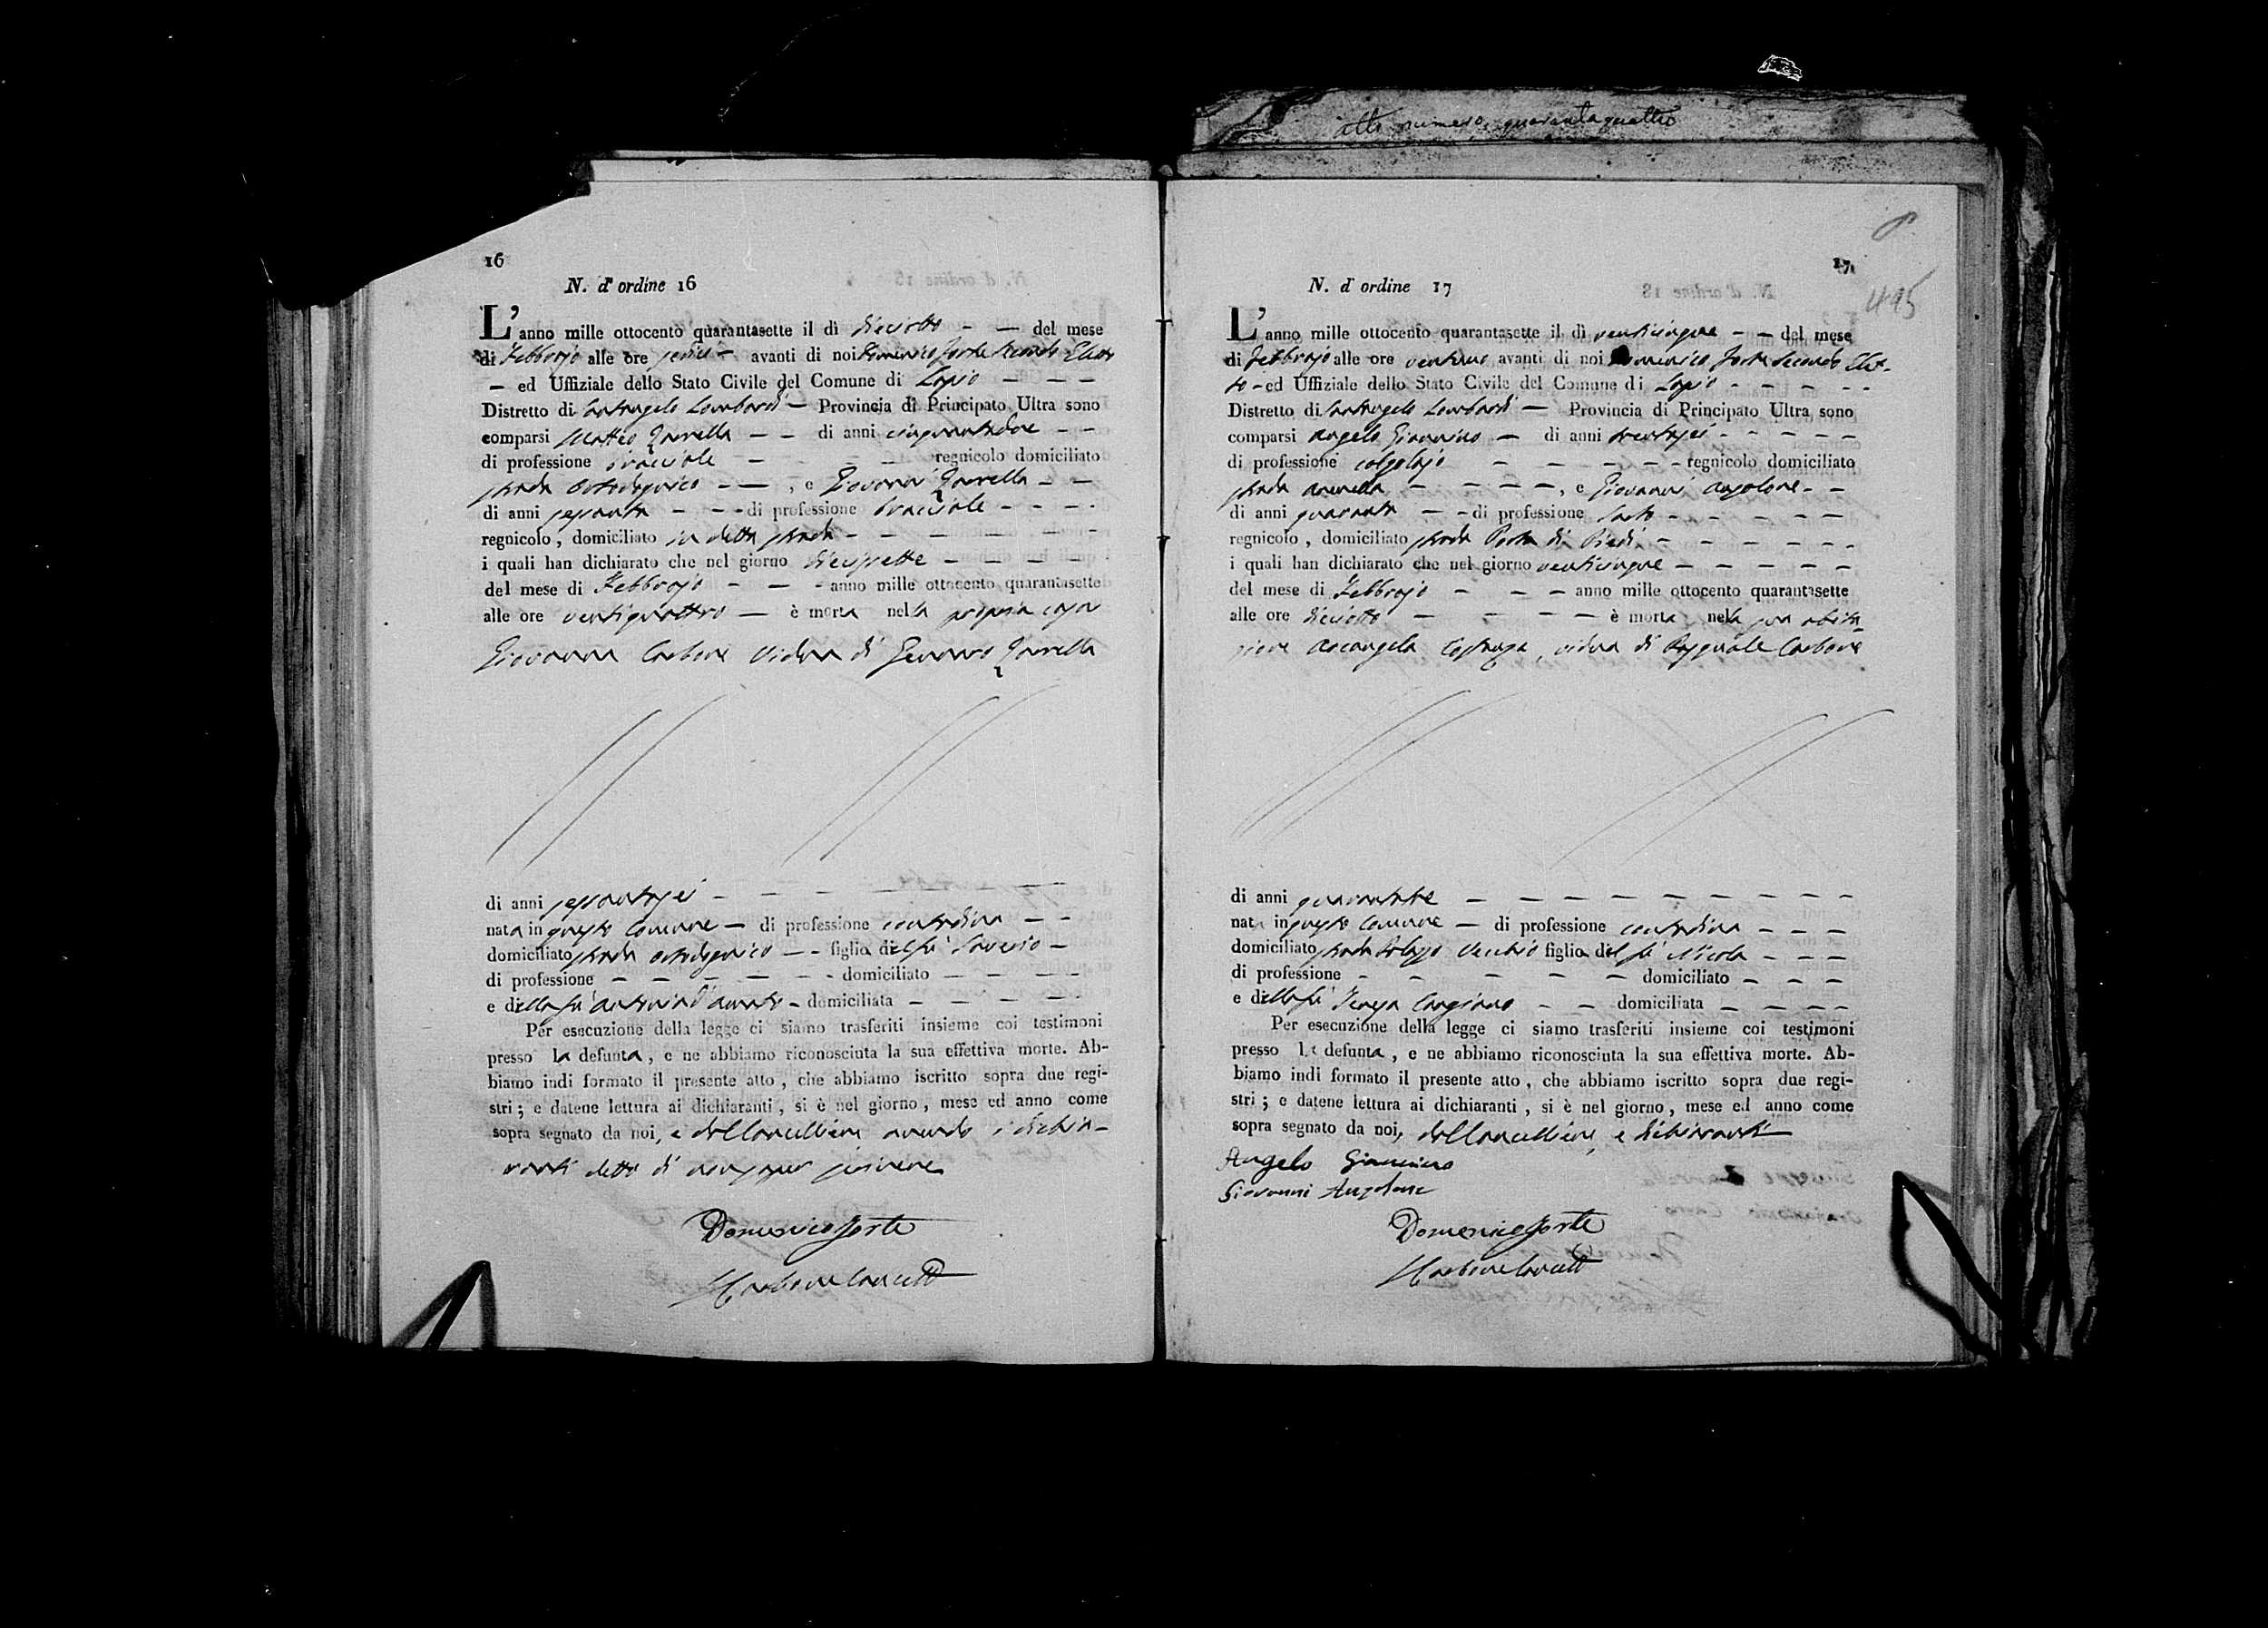 atto numero quarantaquattro
16
N. d'ordine 16
L'anno mille ottocento quarantasette il dì dieciotto - - del mese
di Febbrajo alle ore sedici - avanti di noi Domenico Forte Secondo Eletto
- ed Uffiziale dello Stato Civile del Comune di Lapio - - -
Distretto di Santangelo Lombardi - Provincia di Principato Ultra sono
comparsi Matteo Zarrella - - di anni cinquantadue - -
di professione bracciale - - - - regnicolo domiciliato
strada - - , e Giovanni Zarrella - -
di anni sessanta - - - di professione bracciale - - - -
regnicolo, domiciliato in detta strada - - - - - -
i quali han dichiarato che nel giorno diecisette - - - -
del mese di Febbrajo - - - anno mille ottocento quarantasette
alle ore ventiquattro - è morta nella propria casa
Giovanna Carbone vidua di Gennaro Zarrella
di anni sessantasei - - - - - - -
nata in questo Comune - di professione contadina - -
domiciliato strada - - figlia del fù Saverio -
di professione - - - - - - domiciliato - - - -
e della fù Antonia D'Amato - domiciliata - - - - -
Per esecuzione della legge ci siamo trasferiti insieme coi testimoni
presso la defunta, e ne abbiamo riconosciuta la sua effettiva morte. Ab-
biamo indi formato il presente atto, che abbiamo iscritto sopra due regi-
stri; e datene lettura ai dichiaranti, si è nel giorno, mese ed anno come
sopra segnato da noi, e dal Cancelliere avendo i dichia-
ranti detto di non saper scrivere
Domenico Forte
Carbone Canc
17
495
N. d'ordine 17
L'anno mille ottocento quarantasette il dì venticinque - - del mese
di Febbrajo alle ore ventuno avanti di noi Domenico Forte Secondo Elet-
to - ed Uffiziale dello Stato Civile del Comune di Lapio - - - - -
Distretto di Santangelo Lombardi - Provincia di Principato Ultra sono
comparsi Angelo Giannino - di anni trentasei - - - - -
di professione calzolajo - - - - - - regnicolo domiciliato
strada - - - - , e Giovanni Anzalone - -
di anni quaranta - - di professione Sarto - - - - -
regnicolo, domiciliato strada Porta di Piedi - - - - - - -
i quali han dichiarato che nel giorno venticinque - - - - -
del mese di Febbrajo - - - anno mille ottocento quarantasette
alle ore dieciotto - - - - - è morta nella sua abita-
zione Arcangela Costanza, vidua di Pasquale Carbone
di anni - - - - - - - - -
nata in questo Comune - di professione contadina - - -
domiciliato strada Palazzo Vecchio figlia del fù Nicola - - -
di professione - - - - - domiciliato - - -
e della fù Teresa - - domiciliata - - - -
Per esecuzione della legge ci siamo trasferiti insieme coi testimoni
presso la defunta, e ne abbiamo riconosciuta la sua effettiva morte. Ab-
biamo indi formato il presente atto, che abbiamo iscritto sopra due regi-
stri; e datene lettura ai dichiaranti, si è nel giorno, mese ed anno come
sopra segnato da noi, dal Cancelliere, e dichiaranti
Angelo Giannino
Giovanni Anzalone
Domenico Forte
Carbone Canc